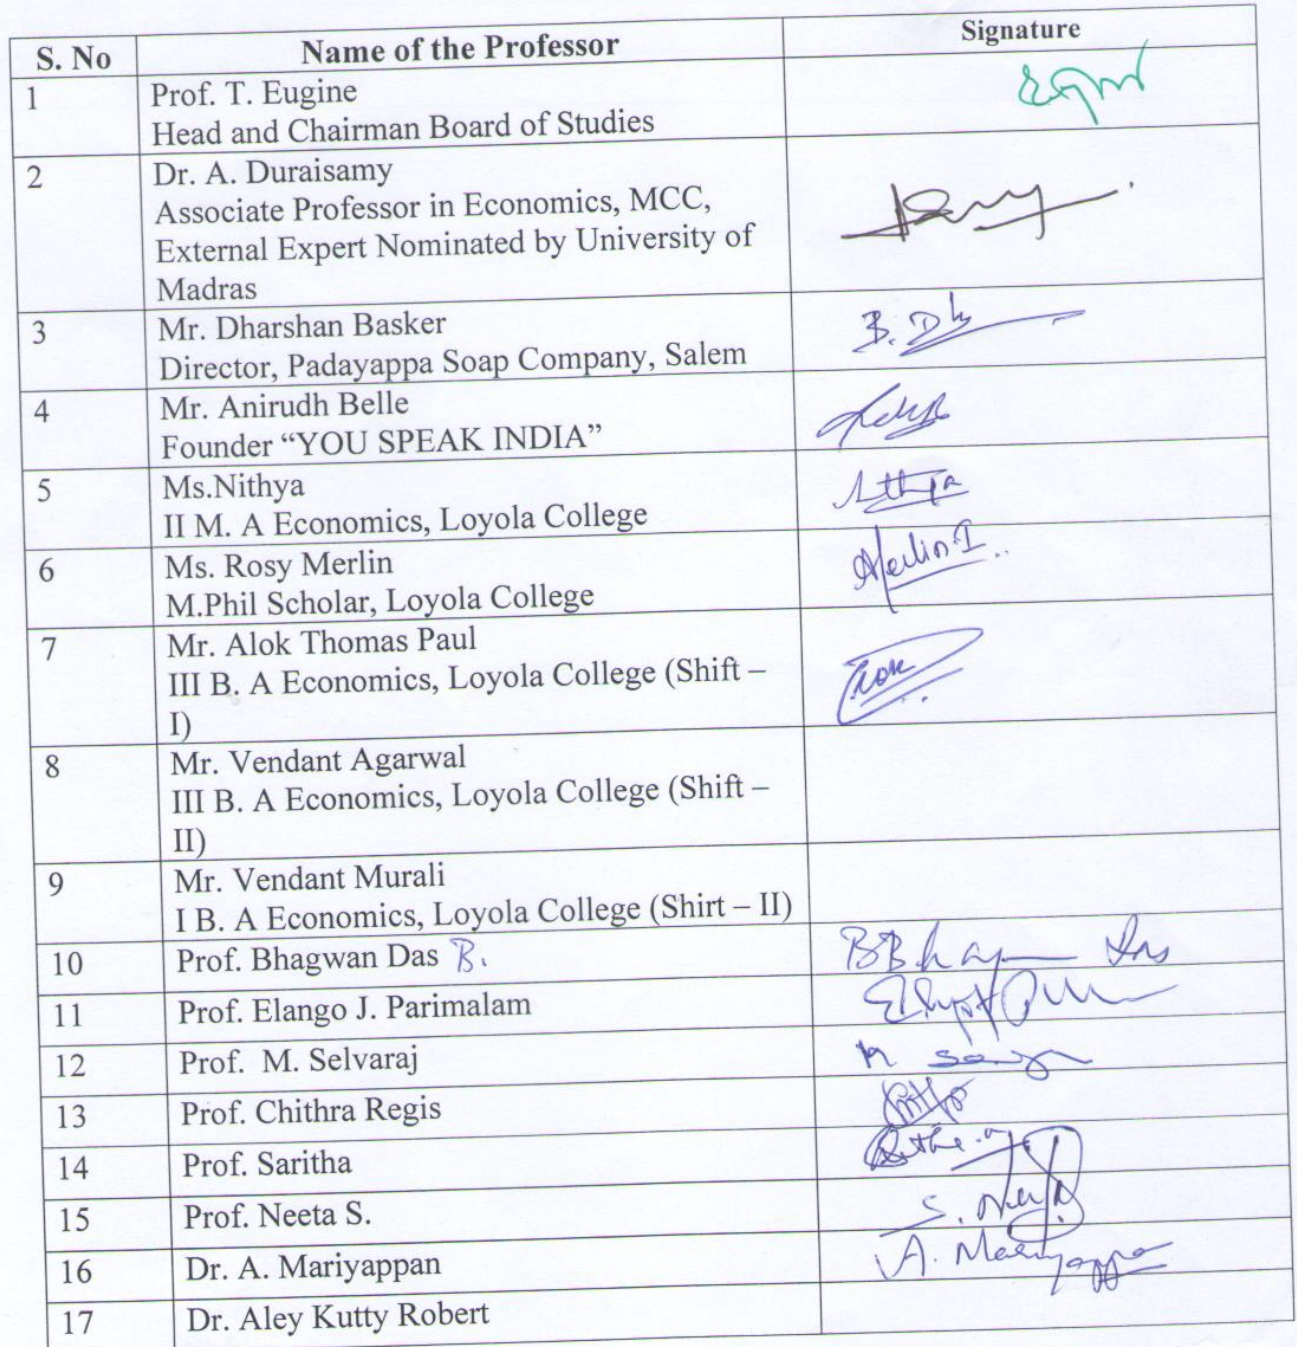 S. No Name of the Professor Signature
1 Prof. T. Eugine
Head and Chairman Board of Studies
2 Dr. A. Duraisamy
Associate Professor in Economics, MCC,
External Expert Nominated by University of
Madras
3 Mr. Dharshan Basker
Director, Padayappa Soap Company, Salem
4 Mr. Anirudh Belle
Founder “YOU SPEAK INDIA”
5 Ms.Nithya
II M. A Economics, Loyola College
6 Ms. Rosy Merlin Merlin I
M.Phil Scholar, Loyola College
7 Mr. Alok Thomas Paul
III B. A Economics, Loyola College (Shift –
I)
8 Mr. Vendant Agarwal
III B. A Economics, Loyola College (Shift –
II)
9 Mr. Vendant Murali
I B. A Economics, Loyola College (Shirt – II)
10 Prof. Bhagwan Das B.
11 Prof. Elango J. Parimalam
12 Prof. M. Selvaraj
13 Prof. Chithra Regis
14 Prof. Saritha
15 Prof. Neeta S.
16 Dr. A. Mariyappan A. Mariyappan
17 Dr. Aley Kutty Robert